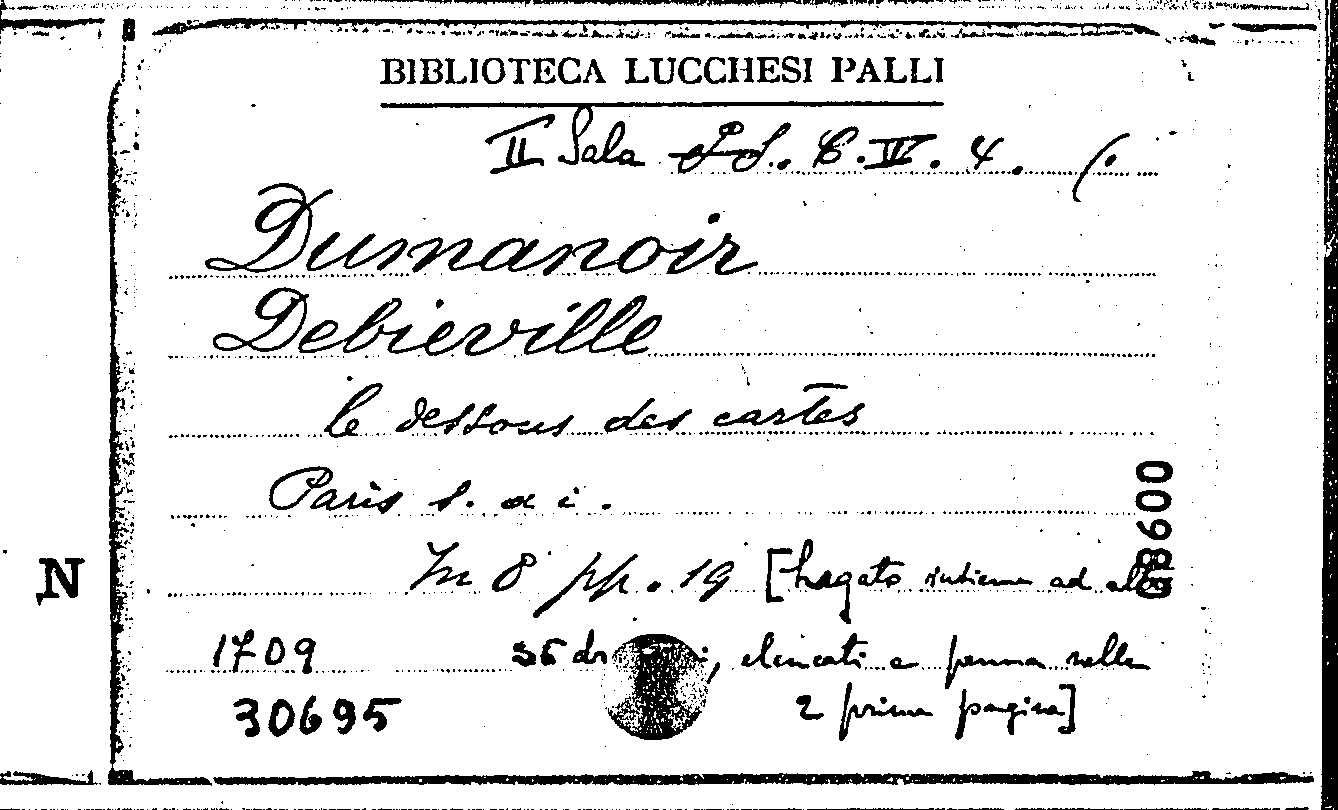 BIBLIOTECA LUCCHESI PALLI
II Sala C. IV. 4. (.
Dumanoir
Debieville
le dessous des cartes
Paris s. a i.
In 8 pp. 19 [legato insieme ad altri
1709 36 elencati a penna nelle
30695 2 prime pagine]
N